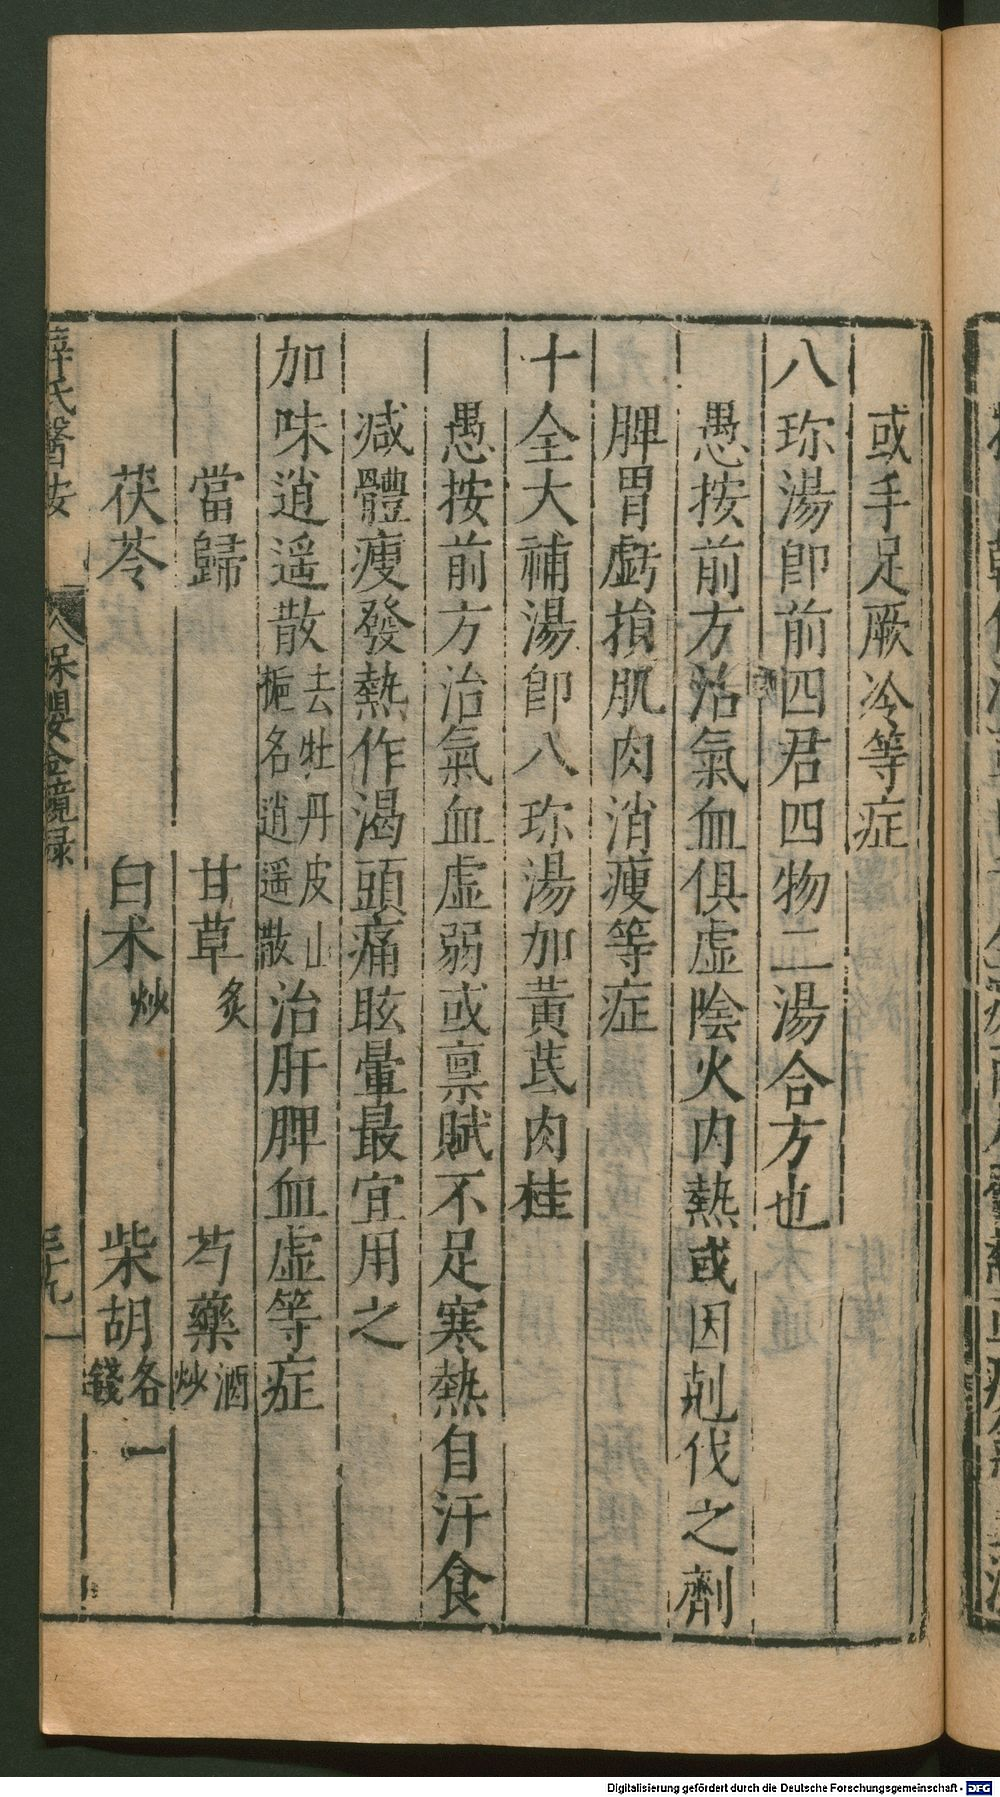 或手足厥冷等症
八珎湯卽前四君四物二湯合方也
愚按前方治氣血俱虚陰火內熱或因剋伐之劑
脾胃虧損肌肉消瘦等症
十全大補湯卽八珎湯加黃芪肉桂
愚按前方治氣血虚弱或禀賦不足寒熱自汗食
减體瘦發熱作渴頭痛眩暈最宜用之
加味逍遥散去牡丹皮山梔名逍遥散治肝脾血虚等症
當歸 甘草炙 芍藥酒炒
茯苓 白术炒 柴胡各一錢
薛氏醫按 保嬰金鏡録
Digitalisierung gefördert durch die Deutsche Forschungsgemeinschaft - DFG